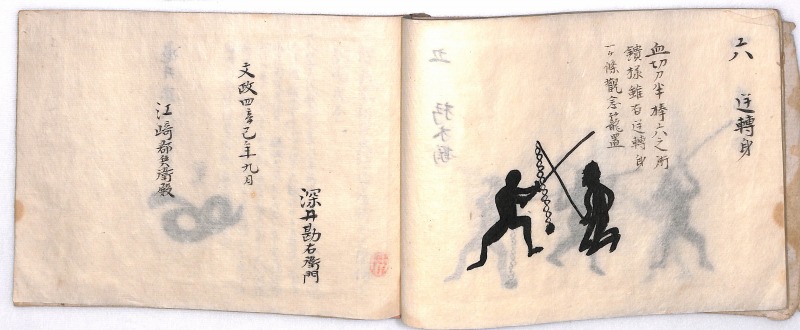 六 逆轉身
血切刀半棒六之術
鎖樣雖有逆轉身
一ケ條觀念籠置
深井勘右衛門
文政四辛巳年九月
江崎郡兵衛殿